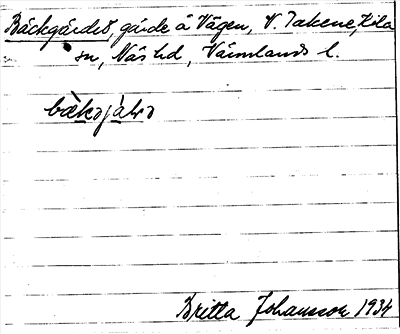 Bäckgärdet, gärde å Vägen, V. Takene, Kila
sn, Näs hd, Värmlands l.
bækəjáləə
Britta Johansson 1934